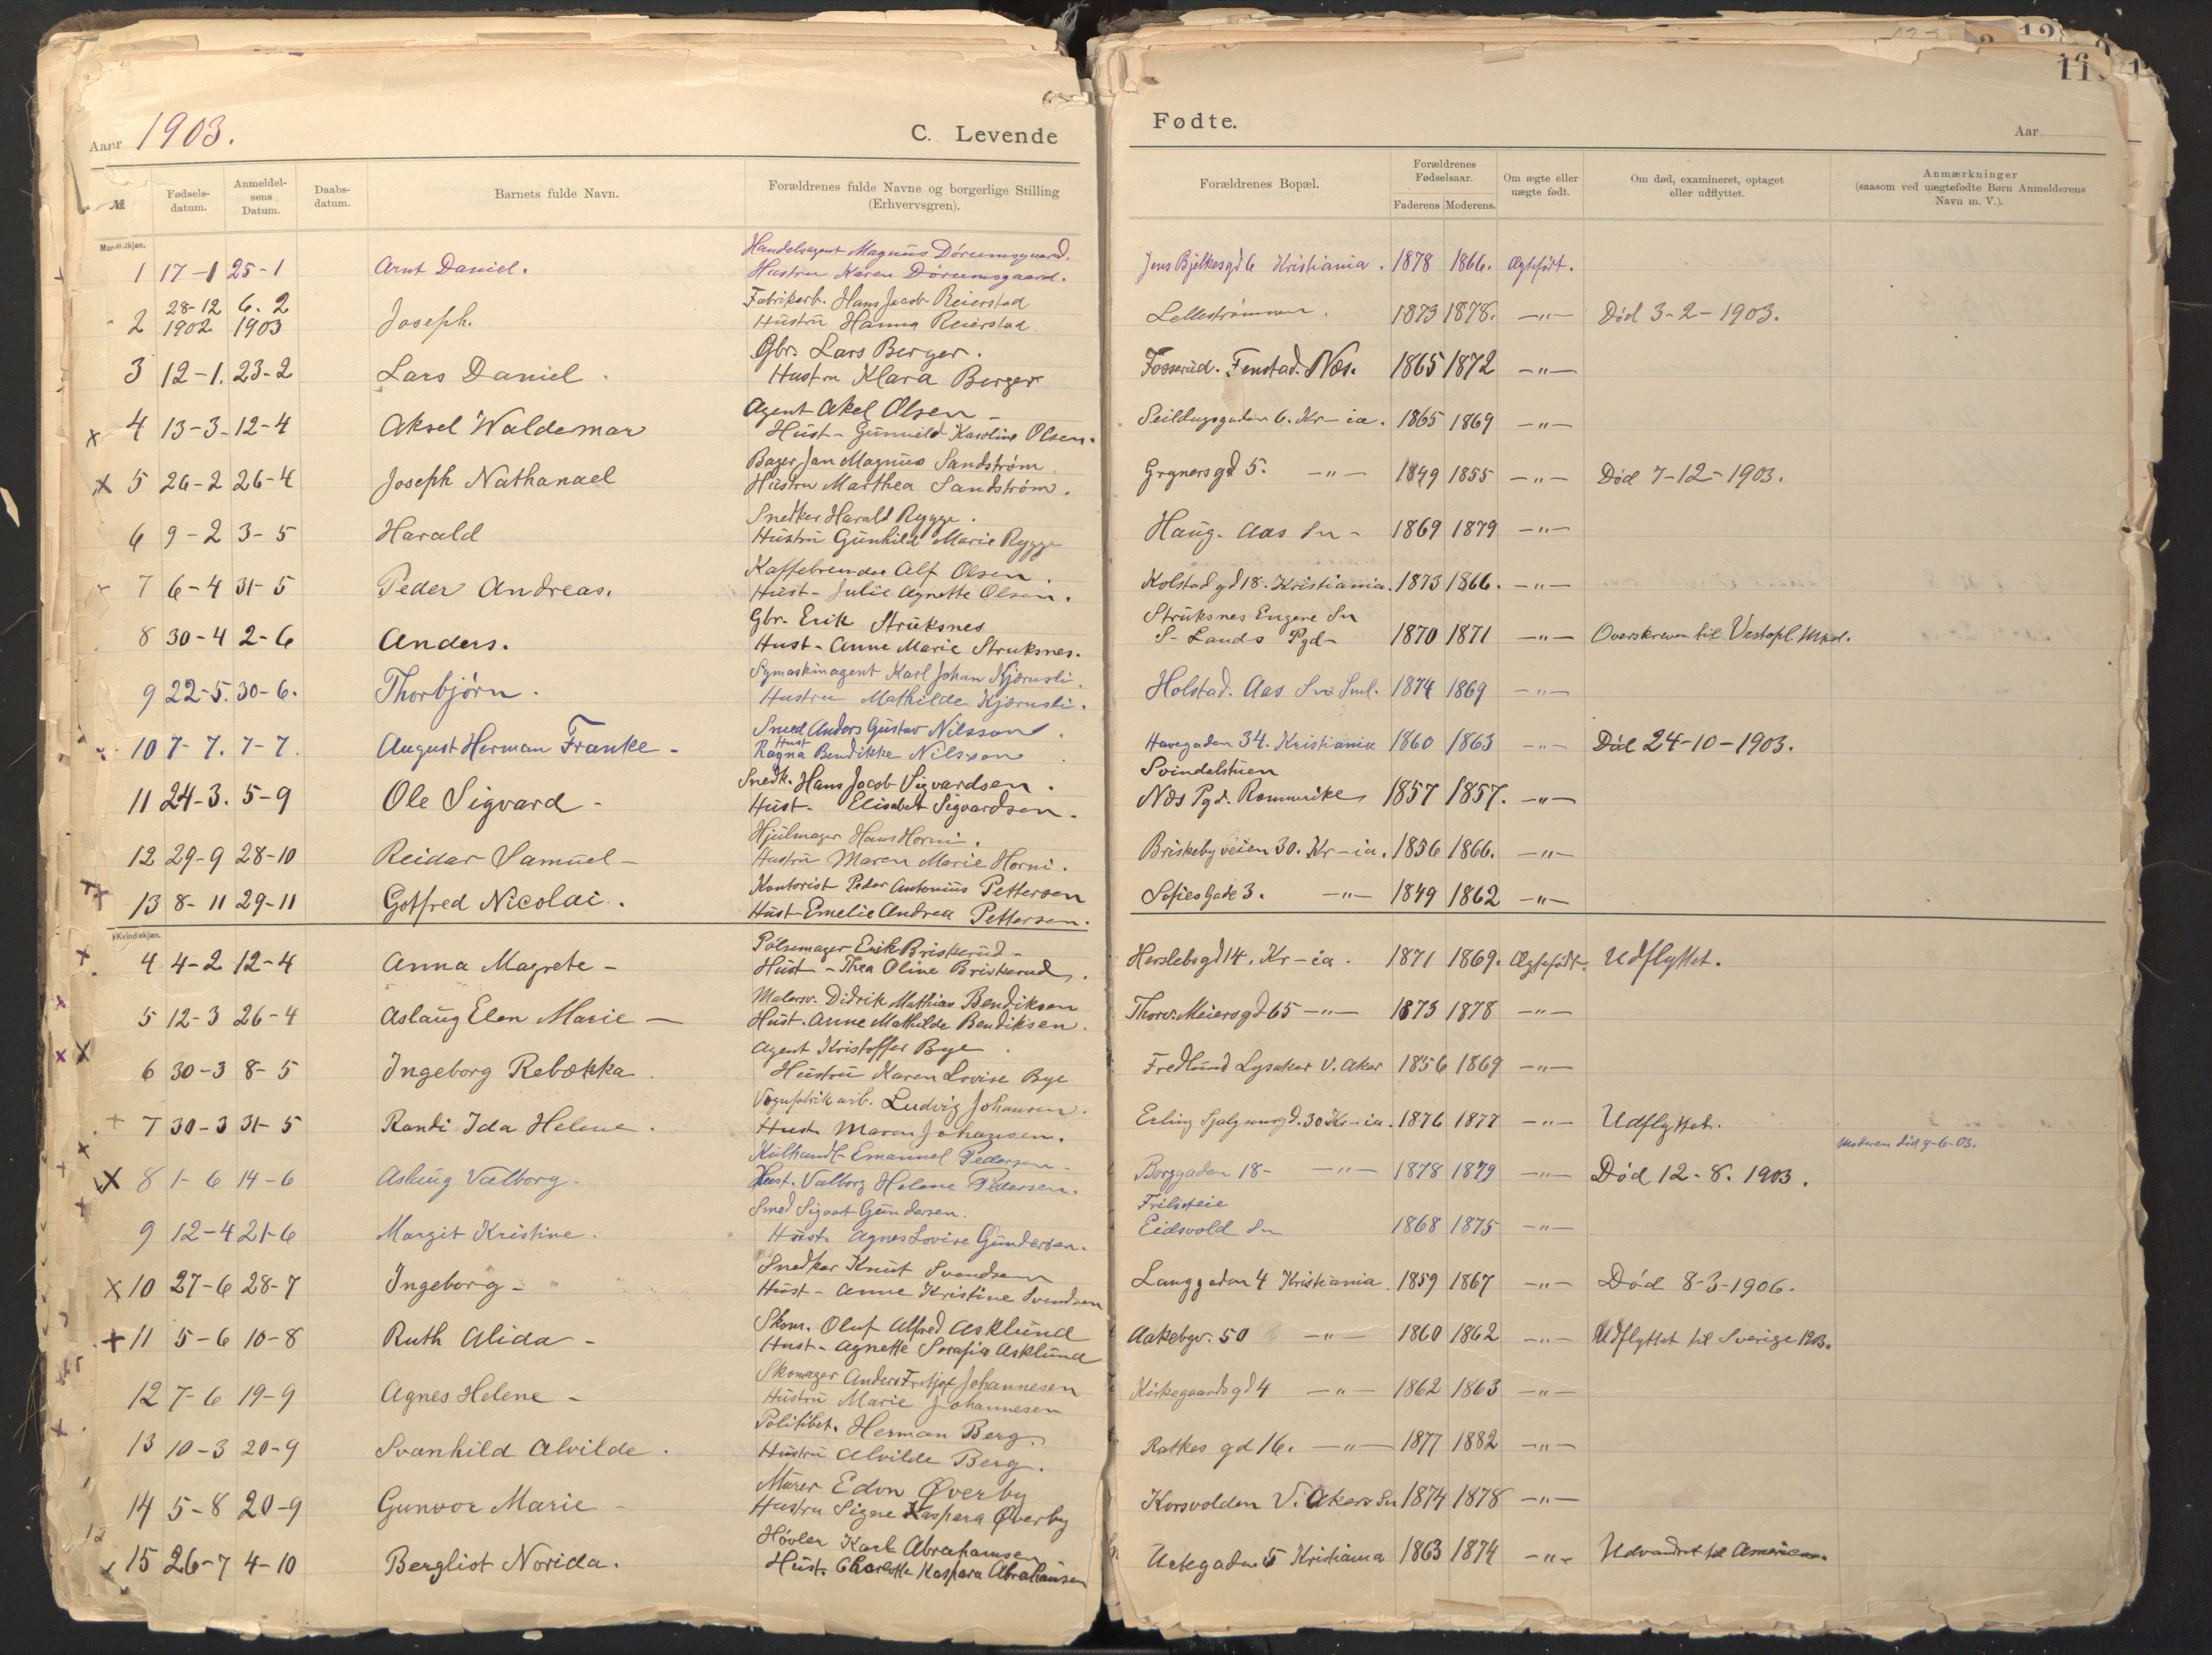 Aar 1903.
C. Levende Fødte.
Aar
11
№
Fødsels-
datum.
Anmeldel-
sens
Datum.
Daabs-
datum.
Barnets fulde Navn.
Forældrenes fulde Navne og borgerlige Stilling
(Erhvervsgren).
Forældrenes Bopæl.
Forældrenes
Fødselsaar.
Faderens Moderens.
Om ægte eller
uægte født.
Om død, examineret, optaget
eller udflyttet.
Anmærkninger
(saasom ved uægtefødte Børn Anmelderens
Navn m. V.).
Mandkjøn.
Handelsagent Magnus Dørumsgaard.
1 17-1 25-1 Arnt Daniel. Hustru Karen Dørumsgaard. Jens Bjelkesgd 6 Kristiania. 1878 1866. Ægtefødt.
28-12 6.2 Fabrikarb. Hans Jacob Reierstad
2 1902 1903 Joseph. Hustru Hanna Reierstad Lellestrømmen. 1873 1878. -"- Død 3-2-1903.
Gbr. Lars Berger.
3 12-1. 23-2 Lars Daniel. Hustru Klara Berger Fosserud. Fenstad. Næs. 1865 1872 -"-
Agent Akel Olsen -
x 4 13-3- 12-4 Aksel Waldemar Hust- Gunnild Karoline Olsen. Seildugsgaden 6. Kr-ia. 1865 1869 -"-
Bager Jan Magnus Sandstrøm
x 5 26-2 26-4 Joseph Nathanael Hustru Marthea Sandstrøm. Grynersgd 5. -"- 1849 1855 -"- Død 7-12-1903.
Snedker Harald Rygge.
6 9-2 3-5 Harald Hustru Gunhild Marie Rygge Haug. Aas Sn - 1869 1879 -"-
Kaffebrender Alf Olsen.
7 6-4 31-5 Peder Andreas. Hust- Julie Agnette Olsen. Kolstadgd 18. Kristiania. 1873 1866. -"-
Gbr. Erik Struksnes Struksnes Engene Sn
8 30-4 2-6 Anders. Hust- Anne Marie Struksnes. S- Lands Pgd- 1870 1871 -"- Overskreven til Vestopl. Mkd.
Symaskinagent Karl Johan Kjærnsli.
9 22-5. 30-6. Thorbjørn. Hustru Mathilde Kjærnsli. Holstad. Aas Sn Sml. 1874 1869 -"-
Smed Anders Gustav Nilsson.
10 7-7. 7-7. August Herman Franke - Hust Ragna Bendikke Nilsson Havegaden 34. Kristiania 1860 1863 -"- Död 24-10-1903.
Snedk. Hans Jacob Sigvardsen. Svindalstuen
11 24-3. 5-9 Ole Sigvard - Hust- Elisabet Sigvardsen. Næs Pgd. Romerike 1857 1857. -"-
Hjulmager Hans Horni.
12 29-9 28-10 Reidar Samuel - Hustru Maren Marie Horni. Briskebyveien 30. Kr-ia. 1856 1866. -"-
Kontorist Peder Antonius Pettersen
13 8-11 29-11 Gotfred Nicolai. Hust- Emelie Andrea Pettersen. Sofies Gade 3. -"- 1849 1862 -"-
Kvindekjøn.
Pølsemager Erik Briskerud -
x 4 4-2 12-4 Anna Magrete - Hust - Thea Oline Briskerud. Herslebsgd 14. Kr-ia. 1871 1869. Ægtefødt. Udflyttet.
Malersv. Didrik Mathias Bendiksen
x 5 12-3 26-4 Aslaug Elen Marie - Hust. Anne Mathilde Bendiksen. Thorv. Meiersgd 65 -"- 1873 1878 -"-
Agent Kristoffer Bye.
x x 6 30-3 8-5 Ingeborg Rebekka. Hustru Karen Lovise Bye Fredlund Lysaker V. Aker 1856 1869 -"-
Vognfabrikarb. Ludvig Johansen.
+ 7 30-3 31-5 Randi Ida Helene. Hust. Maren Johansen. Erling Sjalgsonsgd. 30 Kr-ia. 1876 1877 -"- Udflyttet.
Kulhandl- Emanuel Pedersen - Moderen død 9-6-03.
x 8 1-6 14-6 Aslaug Valborg. Hust. Valborg Helene Pedersen. Borggaden 18- -"- 1878 1879 -"- Død 12-8. 1903.
Smed Sigvart Gundersen. Frilseteie
9 12-4 21-6 Margit Kristine. Hust. Agnes Lovise Gundersen. Eidsvold Sn 1868 1875 -"-
Snedker Knut Svendsen
x 10 27-6 28-7 Ingeborg - Hust- Anne Kristine Svendsen Langgaden 4 Kristiania. 1859 1867 -"- Död 8-3-1906.
Skom. Oluf Alfred Asklund
+ 11 5-6 10-8 Ruth Alida - Hust- Agnette Serafia Asklund Aakebgv. 50 -"- 1860 1862 -"- Udflyttet til Sverige 1903.
Skomager Anders Fretjof Johannesen
12 7-6 19-9 Agnes Helene - Hustru Marie Johannesen Kirkegaardsgd 4 -"- 1862 1863 -"-
Politibet. Herman Berg.
13 10-3 20-9 Svanhild Alvilde. Hustru Alvilde Berg. Ratkes gd 16. -"- 1877 1882 -"-
Murer Edvn Øverby
14 5-8 20-9 Gunvor Marie - Hustru Signe Kaspara Øverby Korsvolden V. Akers Sn 1874 1878 -"-
Høvler Karl Abrahamsen
x 15 26-7 4-10 Bergliot Norida. Hust. Charlotte Kaspara Abrahamsen Urtegaden 5 Kristiania 1863 1874 -"- Udvandret til Amerika.